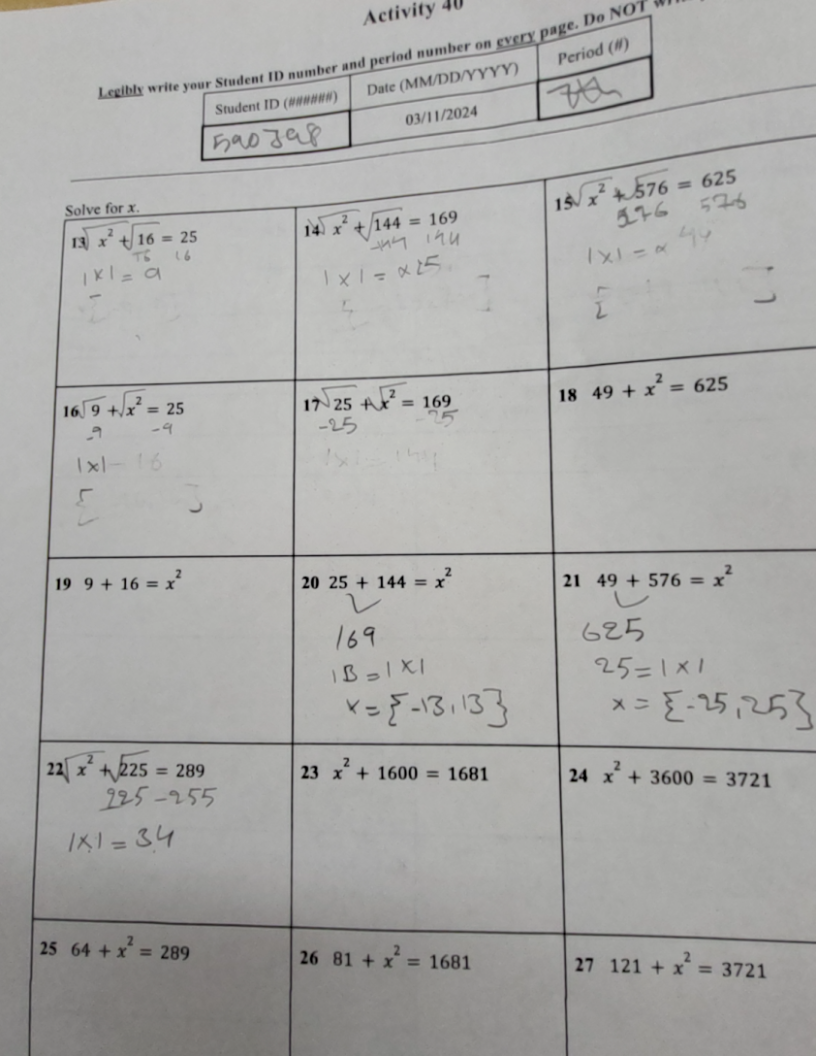 Activity 40
Legibly write your Student ID number and period number on every page. Do NOT
Student ID (######)
Date (MM/DD/YYYY)
Period (#)
03/11/2024
Solve for x.
13 √x² + √16 = 25
16 16
|x| = 9
14 √x² + √144 = 169
-144 144
|x| =
15 √x² + √576 = 625
576 576
|x| =
16 √9 + √x² = 25
-9 -9
|x|
17 √25 + √x² = 169
-25 -25
18 49 + x² = 625
19 9 + 16 = x²
20 25 + 144 = x²
169
13 = |x|
x = {-13, 13}
21 49 + 576 = x²
625
25 = |x|
x = {-25, 25}
22 √x² + √225 = 289
225 - 255
|x| = 34
23 x² + 1600 = 1681
24 x² + 3600 = 3721
25 64 + x² = 289
26 81 + x² = 1681
27 121 + x² = 3721